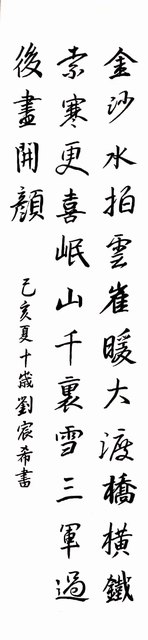 金沙水拍雲崔暖大渡橋橫鐵
索寒更喜岷山千裏雪三軍過
後畫開顏
己亥夏十歲劉宸希書